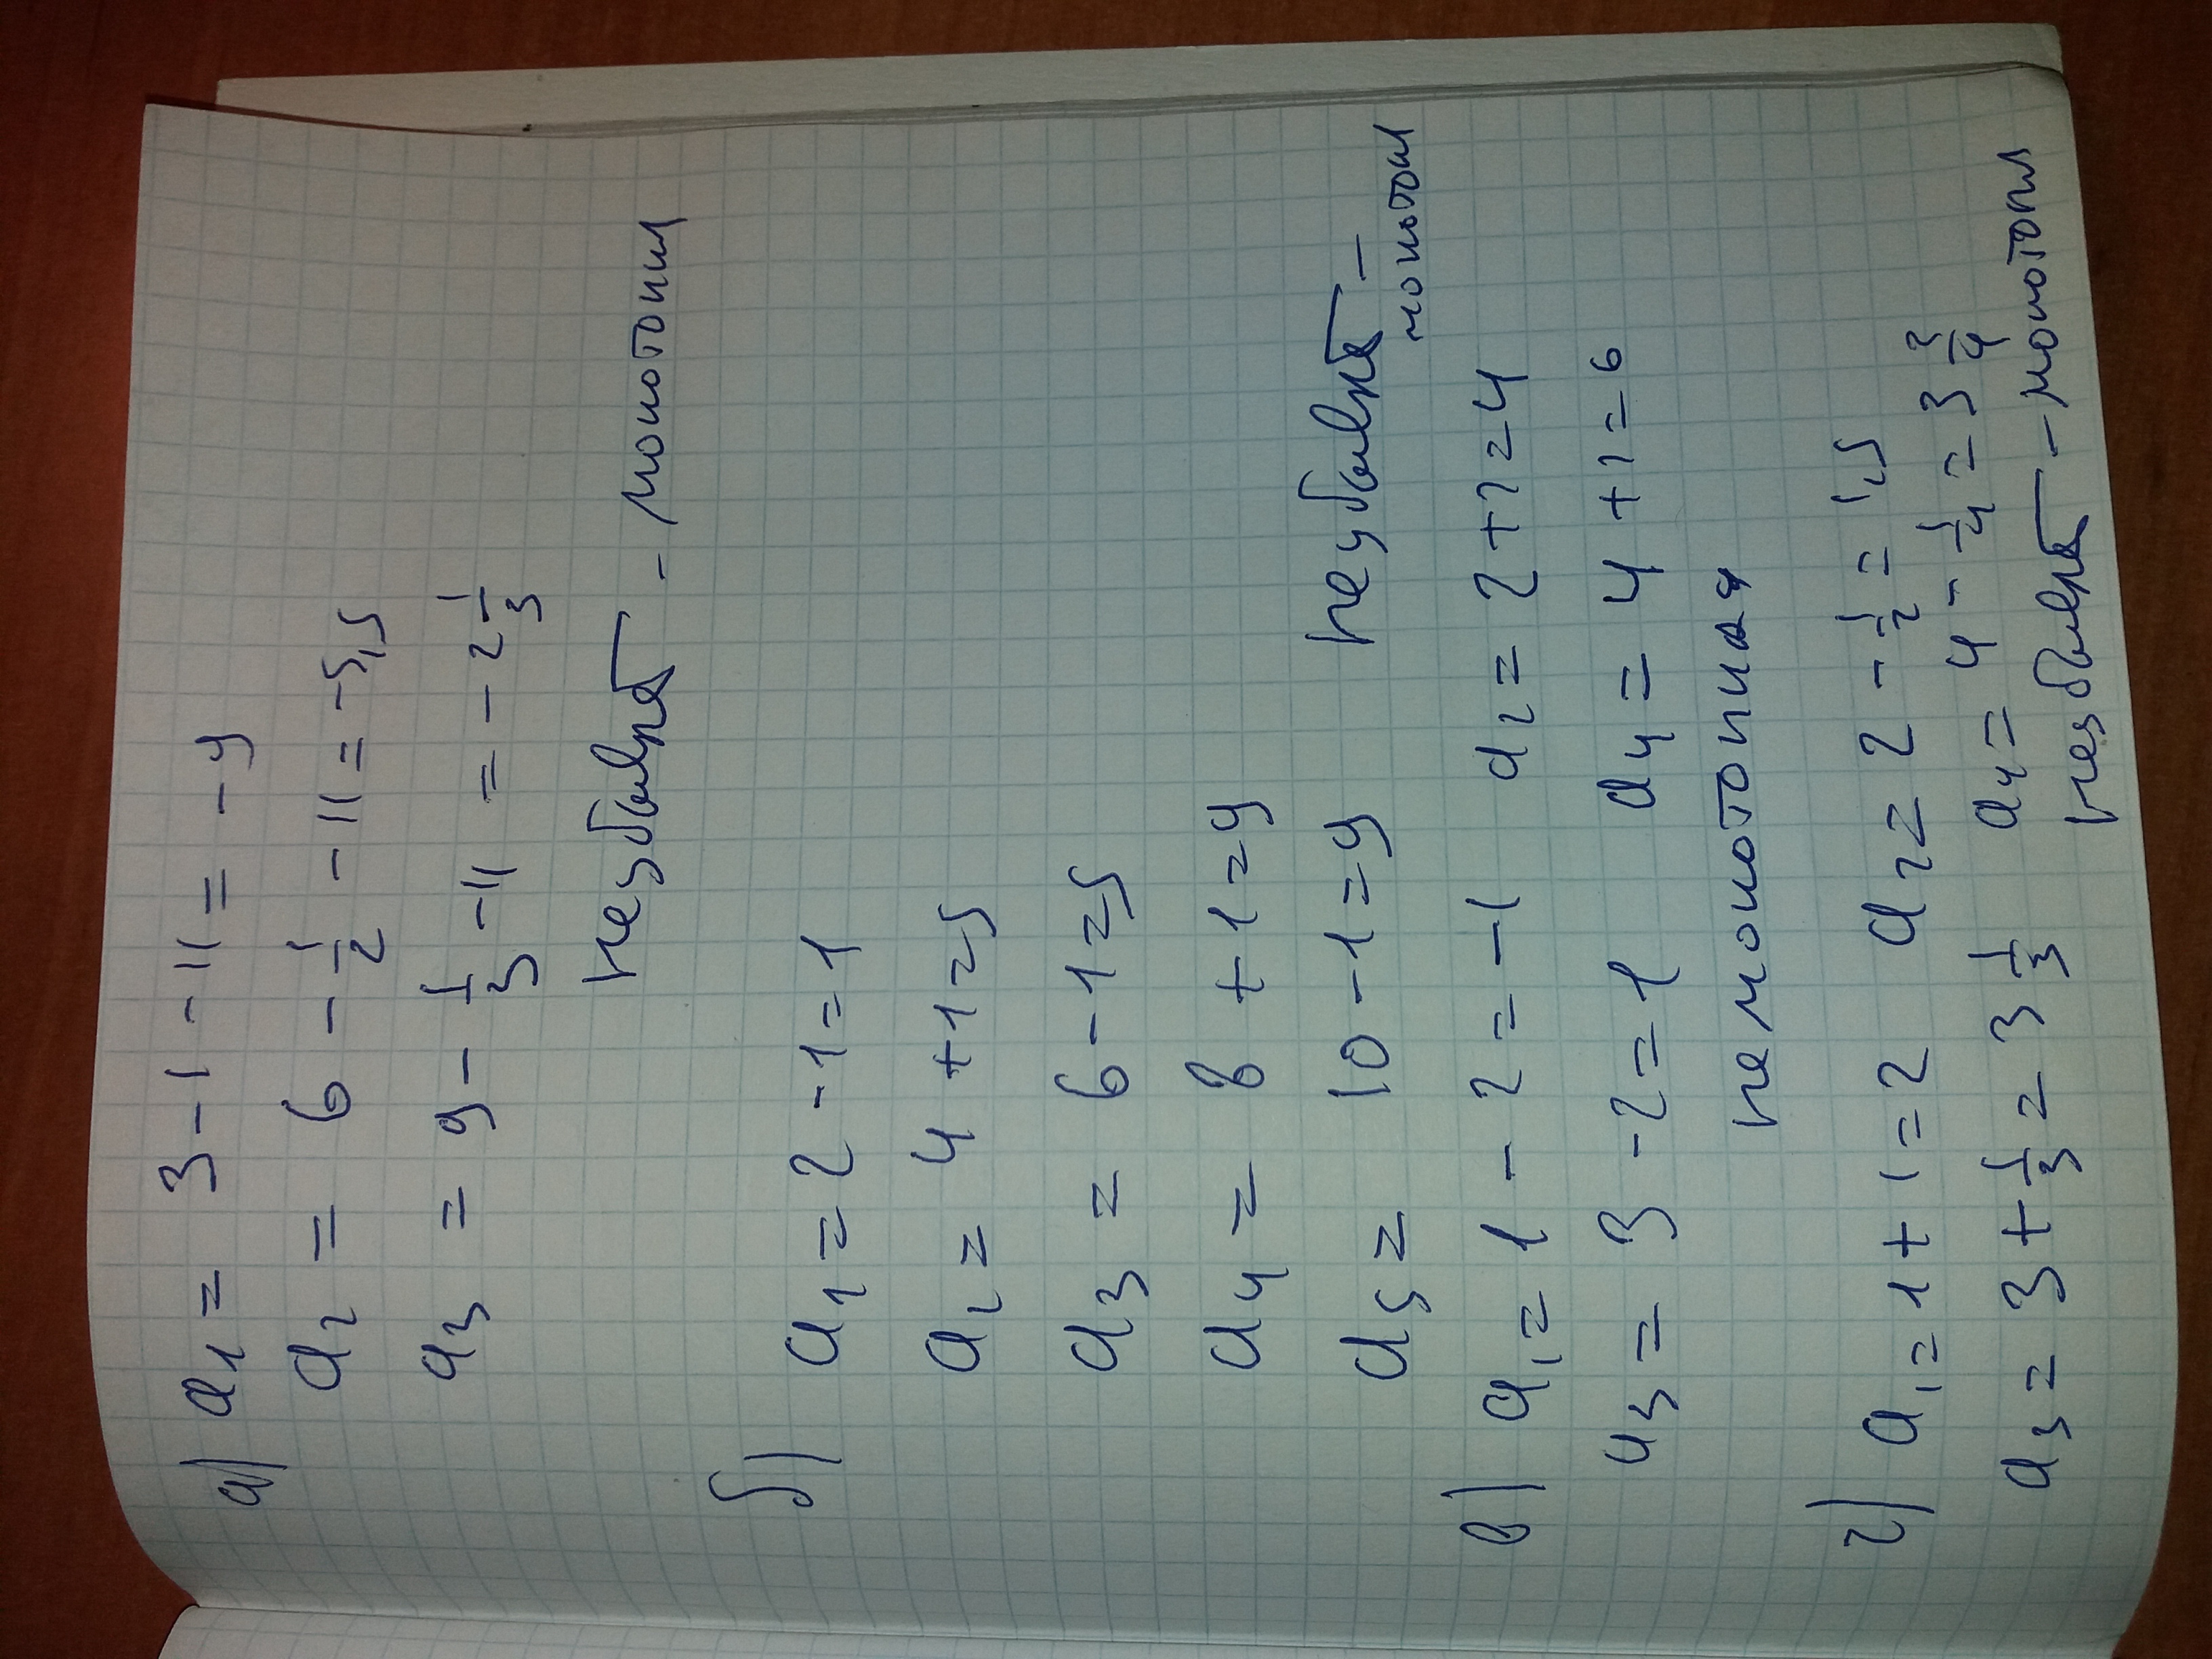 а) a₁ = 3 - 1 - 11 = - 9
a₂ = 6 - 1/2 - 11 = -5,5
a₃ = 9 - 1/3 - 11 = - 2 1/3
неубывает - монотонн
б) a₁ = 2 - 1 = 1
a₂ = 4 + 1 = 5
a₃ = 6 - 1 = 5
a₄ = 8 + 1 = 9
a₅ = 10 - 1 = 9
неубывает -
монотон
в) a₁ = 1 - 2 = -1 a₂ = 2 + 2 = 4
a₃ = 3 - 2 = 1 a₄ = 4 + 2 = 6
немонотонная
г) a₁ = 1 + 1 = 2 a₂ = 2 - 1/2 = 1,5
a₃ = 3 + 1/3 = 3 1/3 a₄ = 4 - 1/4 = 3 3/4
неубывает - монотонн